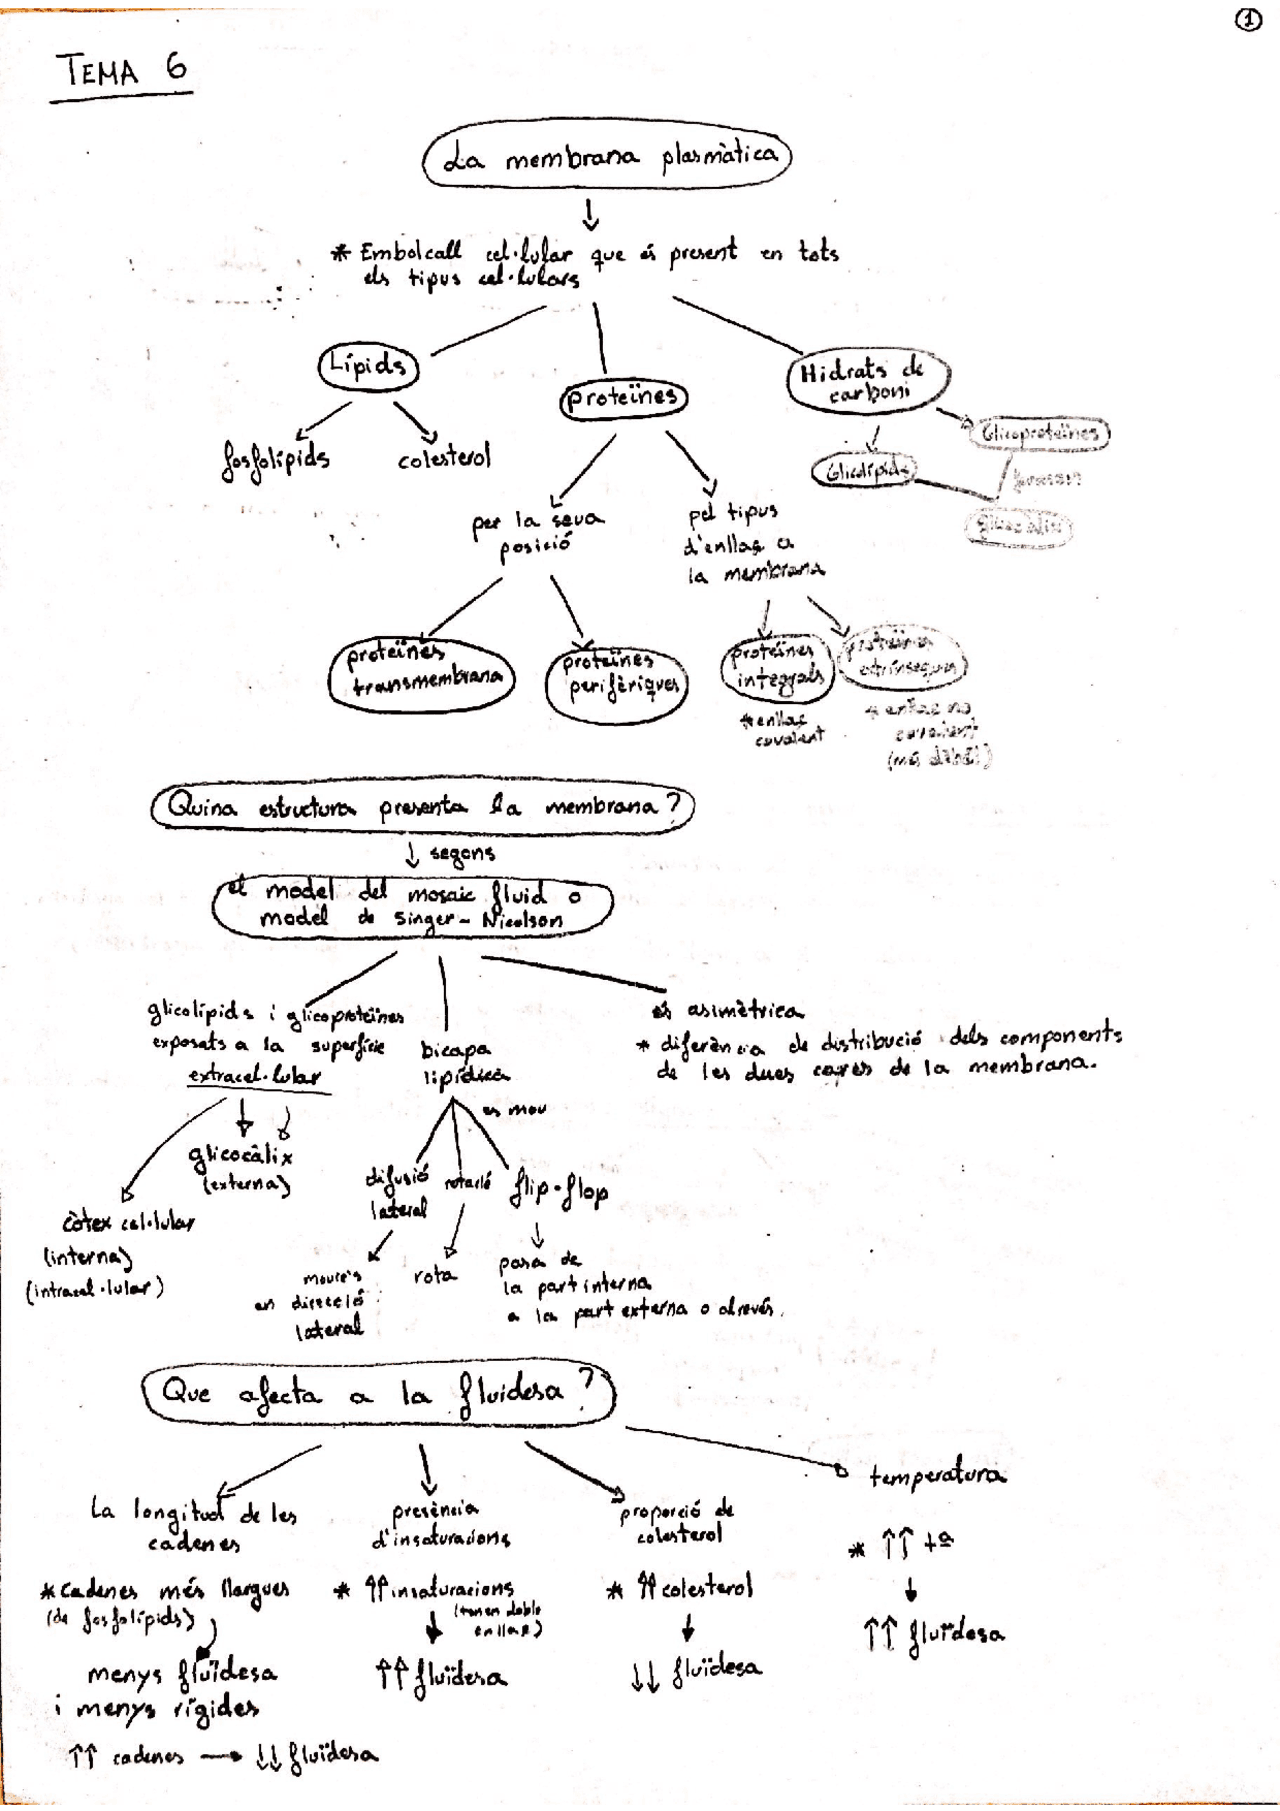 1
TEMA 6
La membrana plasmàtica
* Embolcall cel·lular que és present en tots
els tipus cel·lulars
Lípids
proteïnes
Hidrats de
carboni
fosfolípids
colesterol
Glicolípids
Glicoproteïnes
formen
glicocàlix
per la seva
posició
pel tipus
d'enllaç a
la membrana
proteïnes
transmembrana
proteïnes
perifèriques
proteïnes
integrals
proteïnes
extrínseques
* enllaç
covalent
* enllaç no
covalent
(més dèbil)
Quina estructura presenta la membrana?
segons
el model del mosaic fluid o
model de Singer-Nicolson
glicolípids i glicoproteïnes
exposats a la superfície
extracel·lular
bicapa
lipídica
és asimètrica
* diferència de distribució dels components
de les dues cares de la membrana.
es mou
glicocàlix
(externa)
còtex cel·lular
(interna)
(intracel·lular)
difusió
lateral
rotació
flip-flop
moure's
en direcció
lateral
rota
pasa de
la part interna
a la part externa o alrevés.
Que afecta a la fluïdesa?
La longitud de les
cadenes
presència
d'insaturacions
proporció de
colesterol
temperatura
* cadenes més llargues
(de fosfolípids)
menys fluïdesa
i menys rígides
↑↑ cadenes → ↓↓ fluïdesa
* ↑↑ insaturacions
(tenen doble
enllaç)
↑↑ fluïdesa
* ↑↑ colesterol
↓↓ fluïdesa
* ↑↑ tª
↑↑ fluïdesa